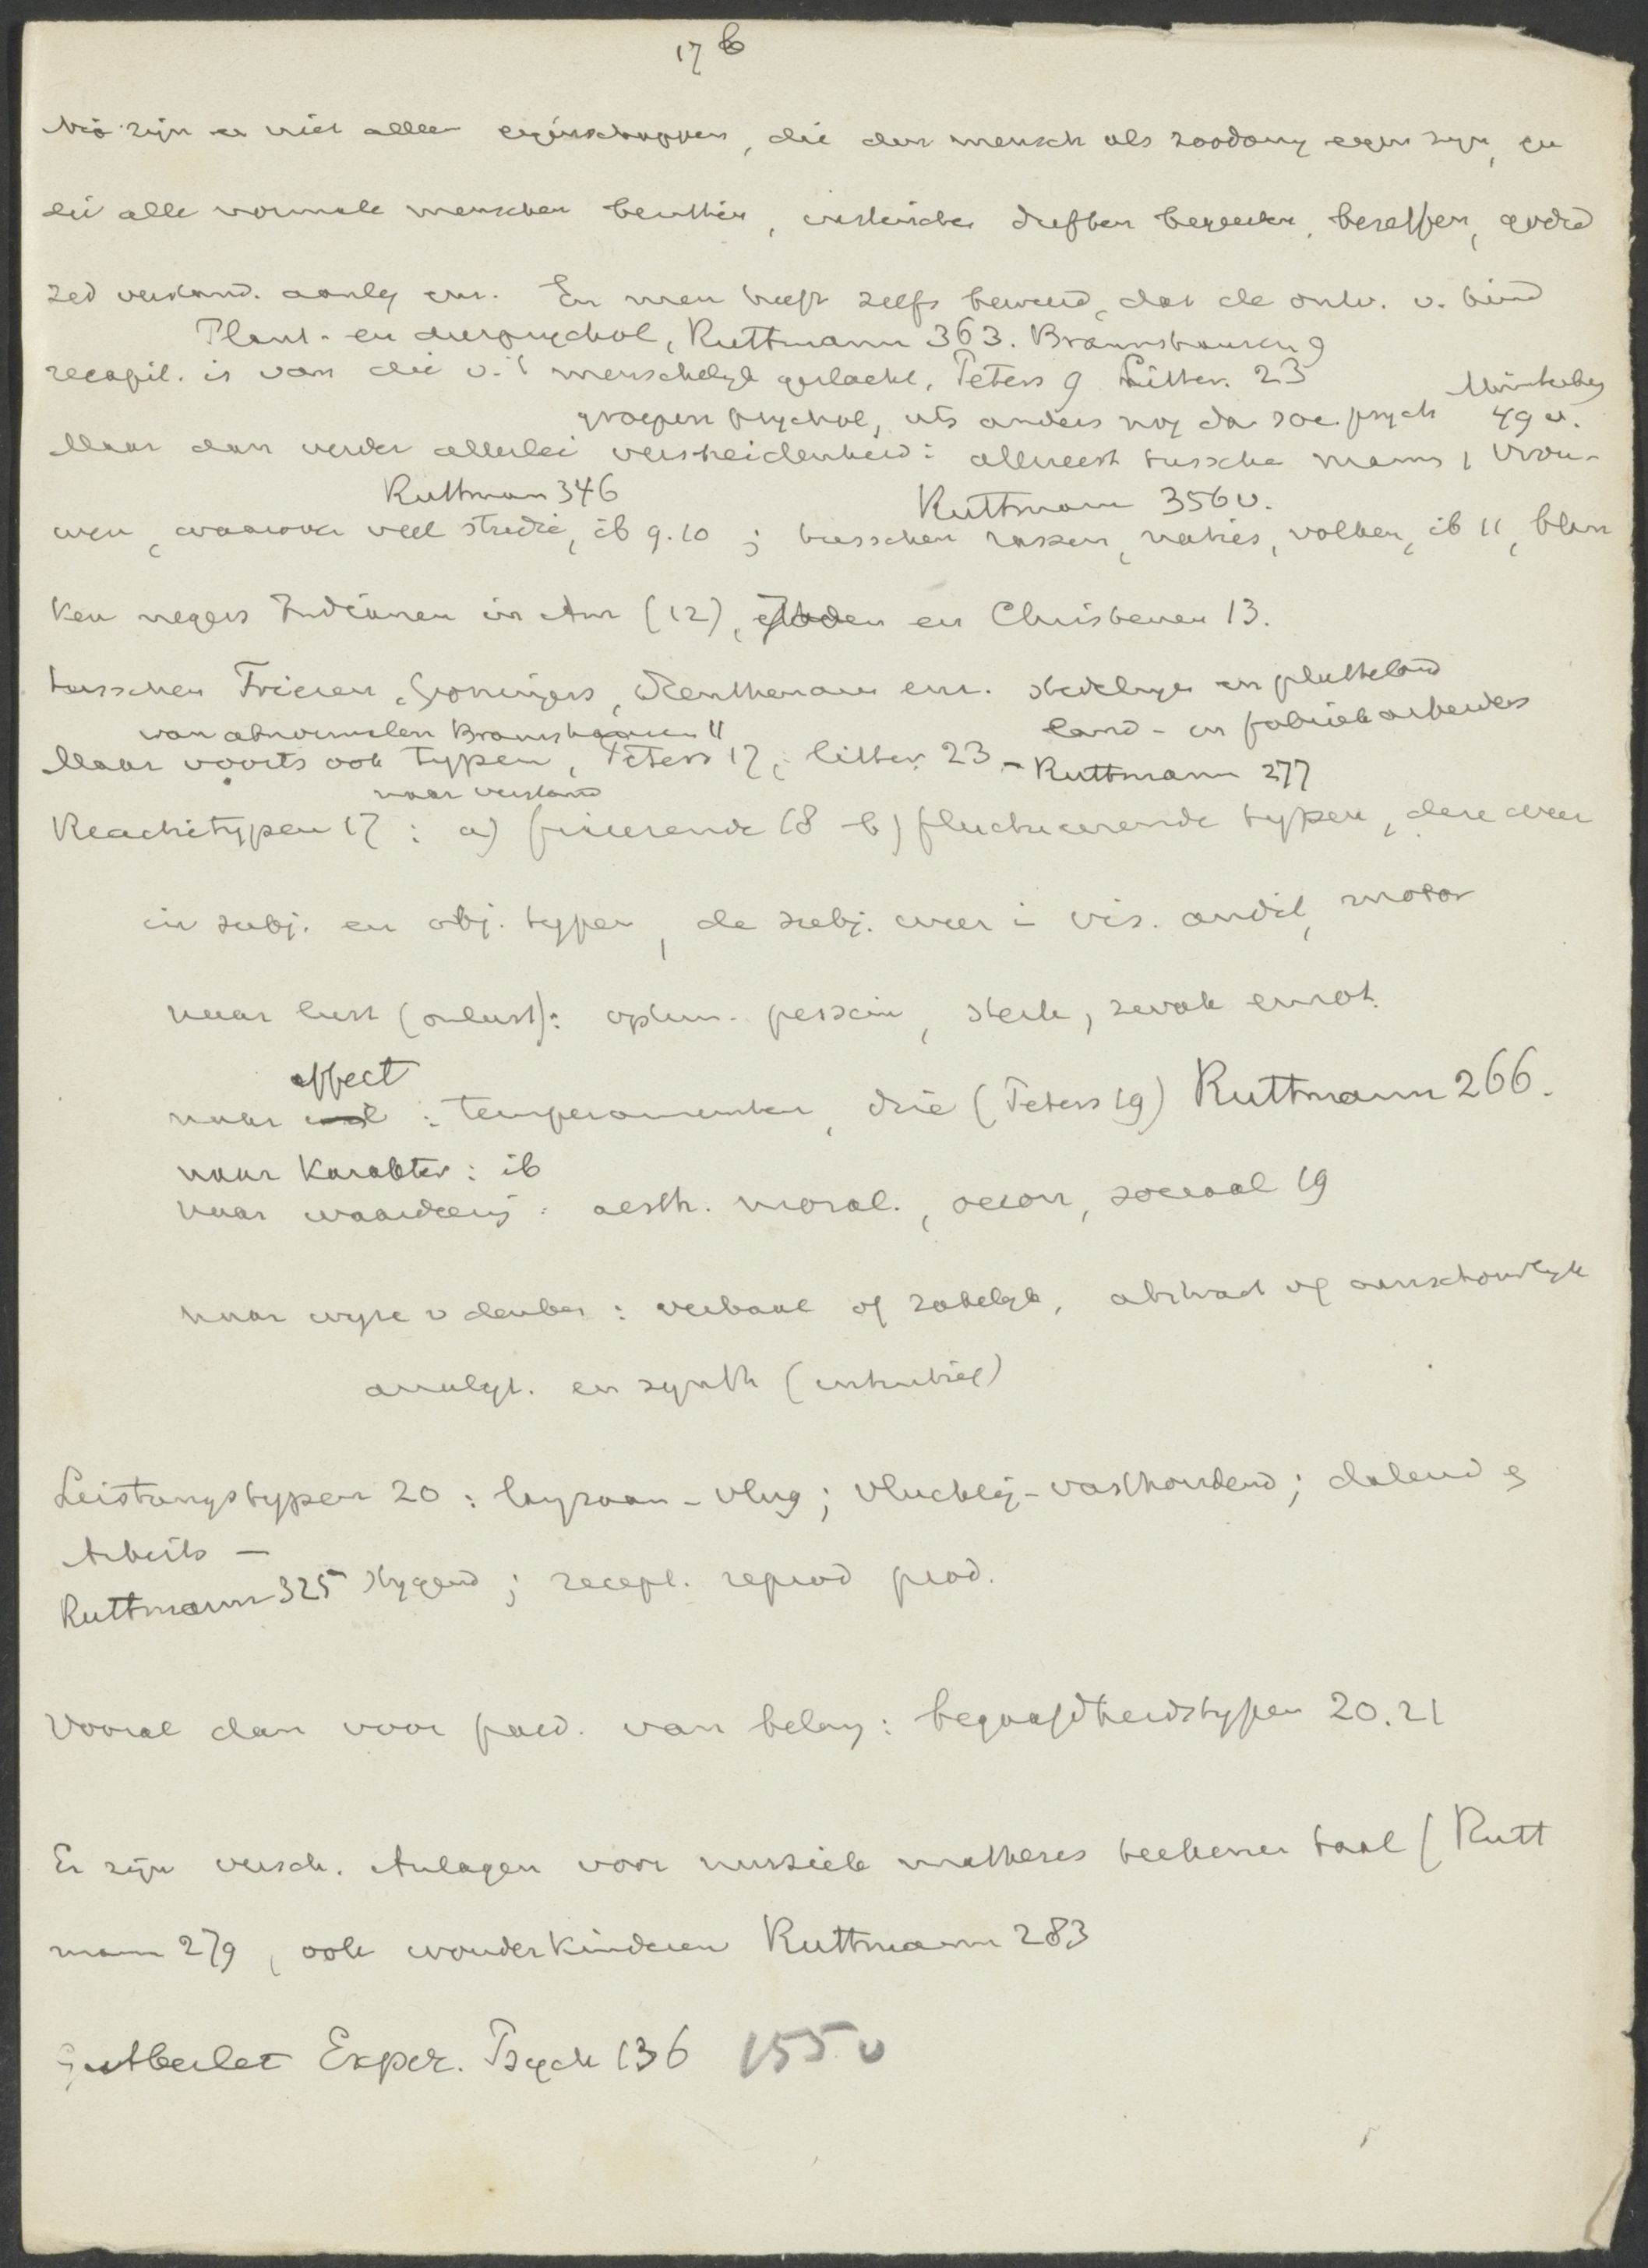 17 b
Nu zijn er niet alleen eigenschappen, die den mensch als zoodanig eigen zijn, en
die alle normale menschen bezitten, instincten driften begeerten, beseffen, godsd
zed verstand. aanleg enz. En men heeft zelfs beweerd, dat de ontw. v. kind
Plant- en dierpsychol, Ruttmann 363. Braunshausen 9
recapit. is van die v. 't menschelijk geslacht, Peters 9 Litter. 23
groepen psychol, iets anders nog dan soc. psych Münsterberg 49 v.
Maar dan verder allerlei verscheidenheid: allereerst tussche mann, vrou-
Ruttman 346 Ruttmann 356 v.
wen, waarover veel studie, ib 9.10 ; tusschen rassen, naties, volken, ib 11, blan
ken negers Indianen in Am (12), Joden en Christenen 13.
tusschen Friezen, Groningers, Drenthenaren enz. stedelingen en platteland
van abnormalen Braunshausen 11 land- en fabriekarbeiders
Maar voorts ook typen, Peters 17, litter. 23 - Ruttmann 277
naar verstand
Reactietypen 17 : a) fixeerende 18 b) fluctueerende typen, deze weer
in subj. en obj. typen, de subj. weer i vis. audit, motor
naar lust (onlust): optim. pessim, sterk, zwak emot.
affect
naar : temperamenten, drie (Peters 19) Ruttmann 266.
naar Karakter : ib
naar waardeering : aesth. moral., oecon, sociaal 19
naar wijze v denken : verbaal of zakelijk, abstract of aanschouwlijk
analyt. en synth (intuitief)
Leistungstypen 20 : langzaam - vlug ; vluchtig - vasthoudend ; dalend en
Arbeits -
Ruttmann 325 stijgend ; recept. reprod prod.
Vooral dan voor paed. van belang : begaafdheidstypen 20.21
Er zijn versch. Anlagen voor muziek mathesis teekenen taal (Rutt
mann 279, ook wonderkinderen Ruttmann 283
Gutberlet Exper. Psych 136 155 v